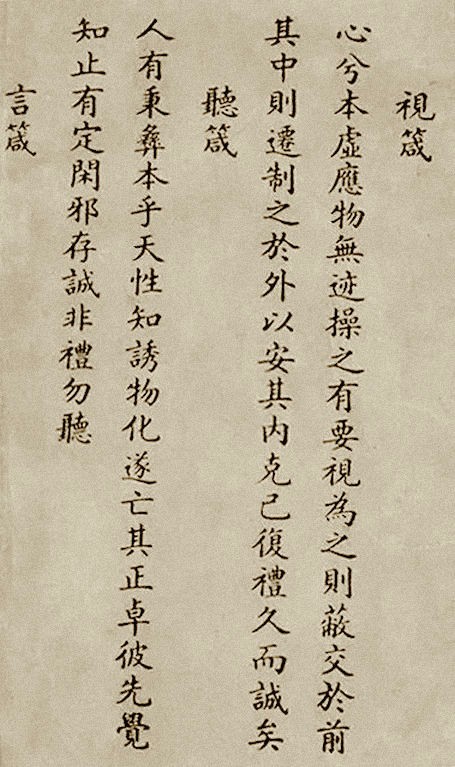 視箴
心兮本虛應物無迹操之有要視為之則蔽交於前
其中則遷制之於外以安其內克己復禮久而誠矣
聽箴
人有秉彝本乎天性知誘物化遂亡其正卓彼先覺
知止有定閑邪存誠非禮勿聽
言箴